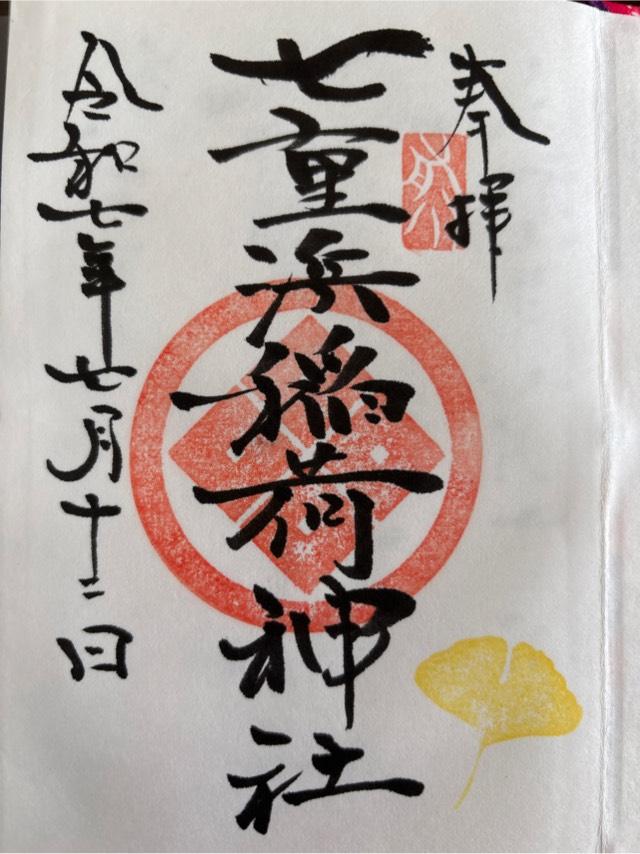 奉拝
七重浜稲荷神社
令和七年七月十二日